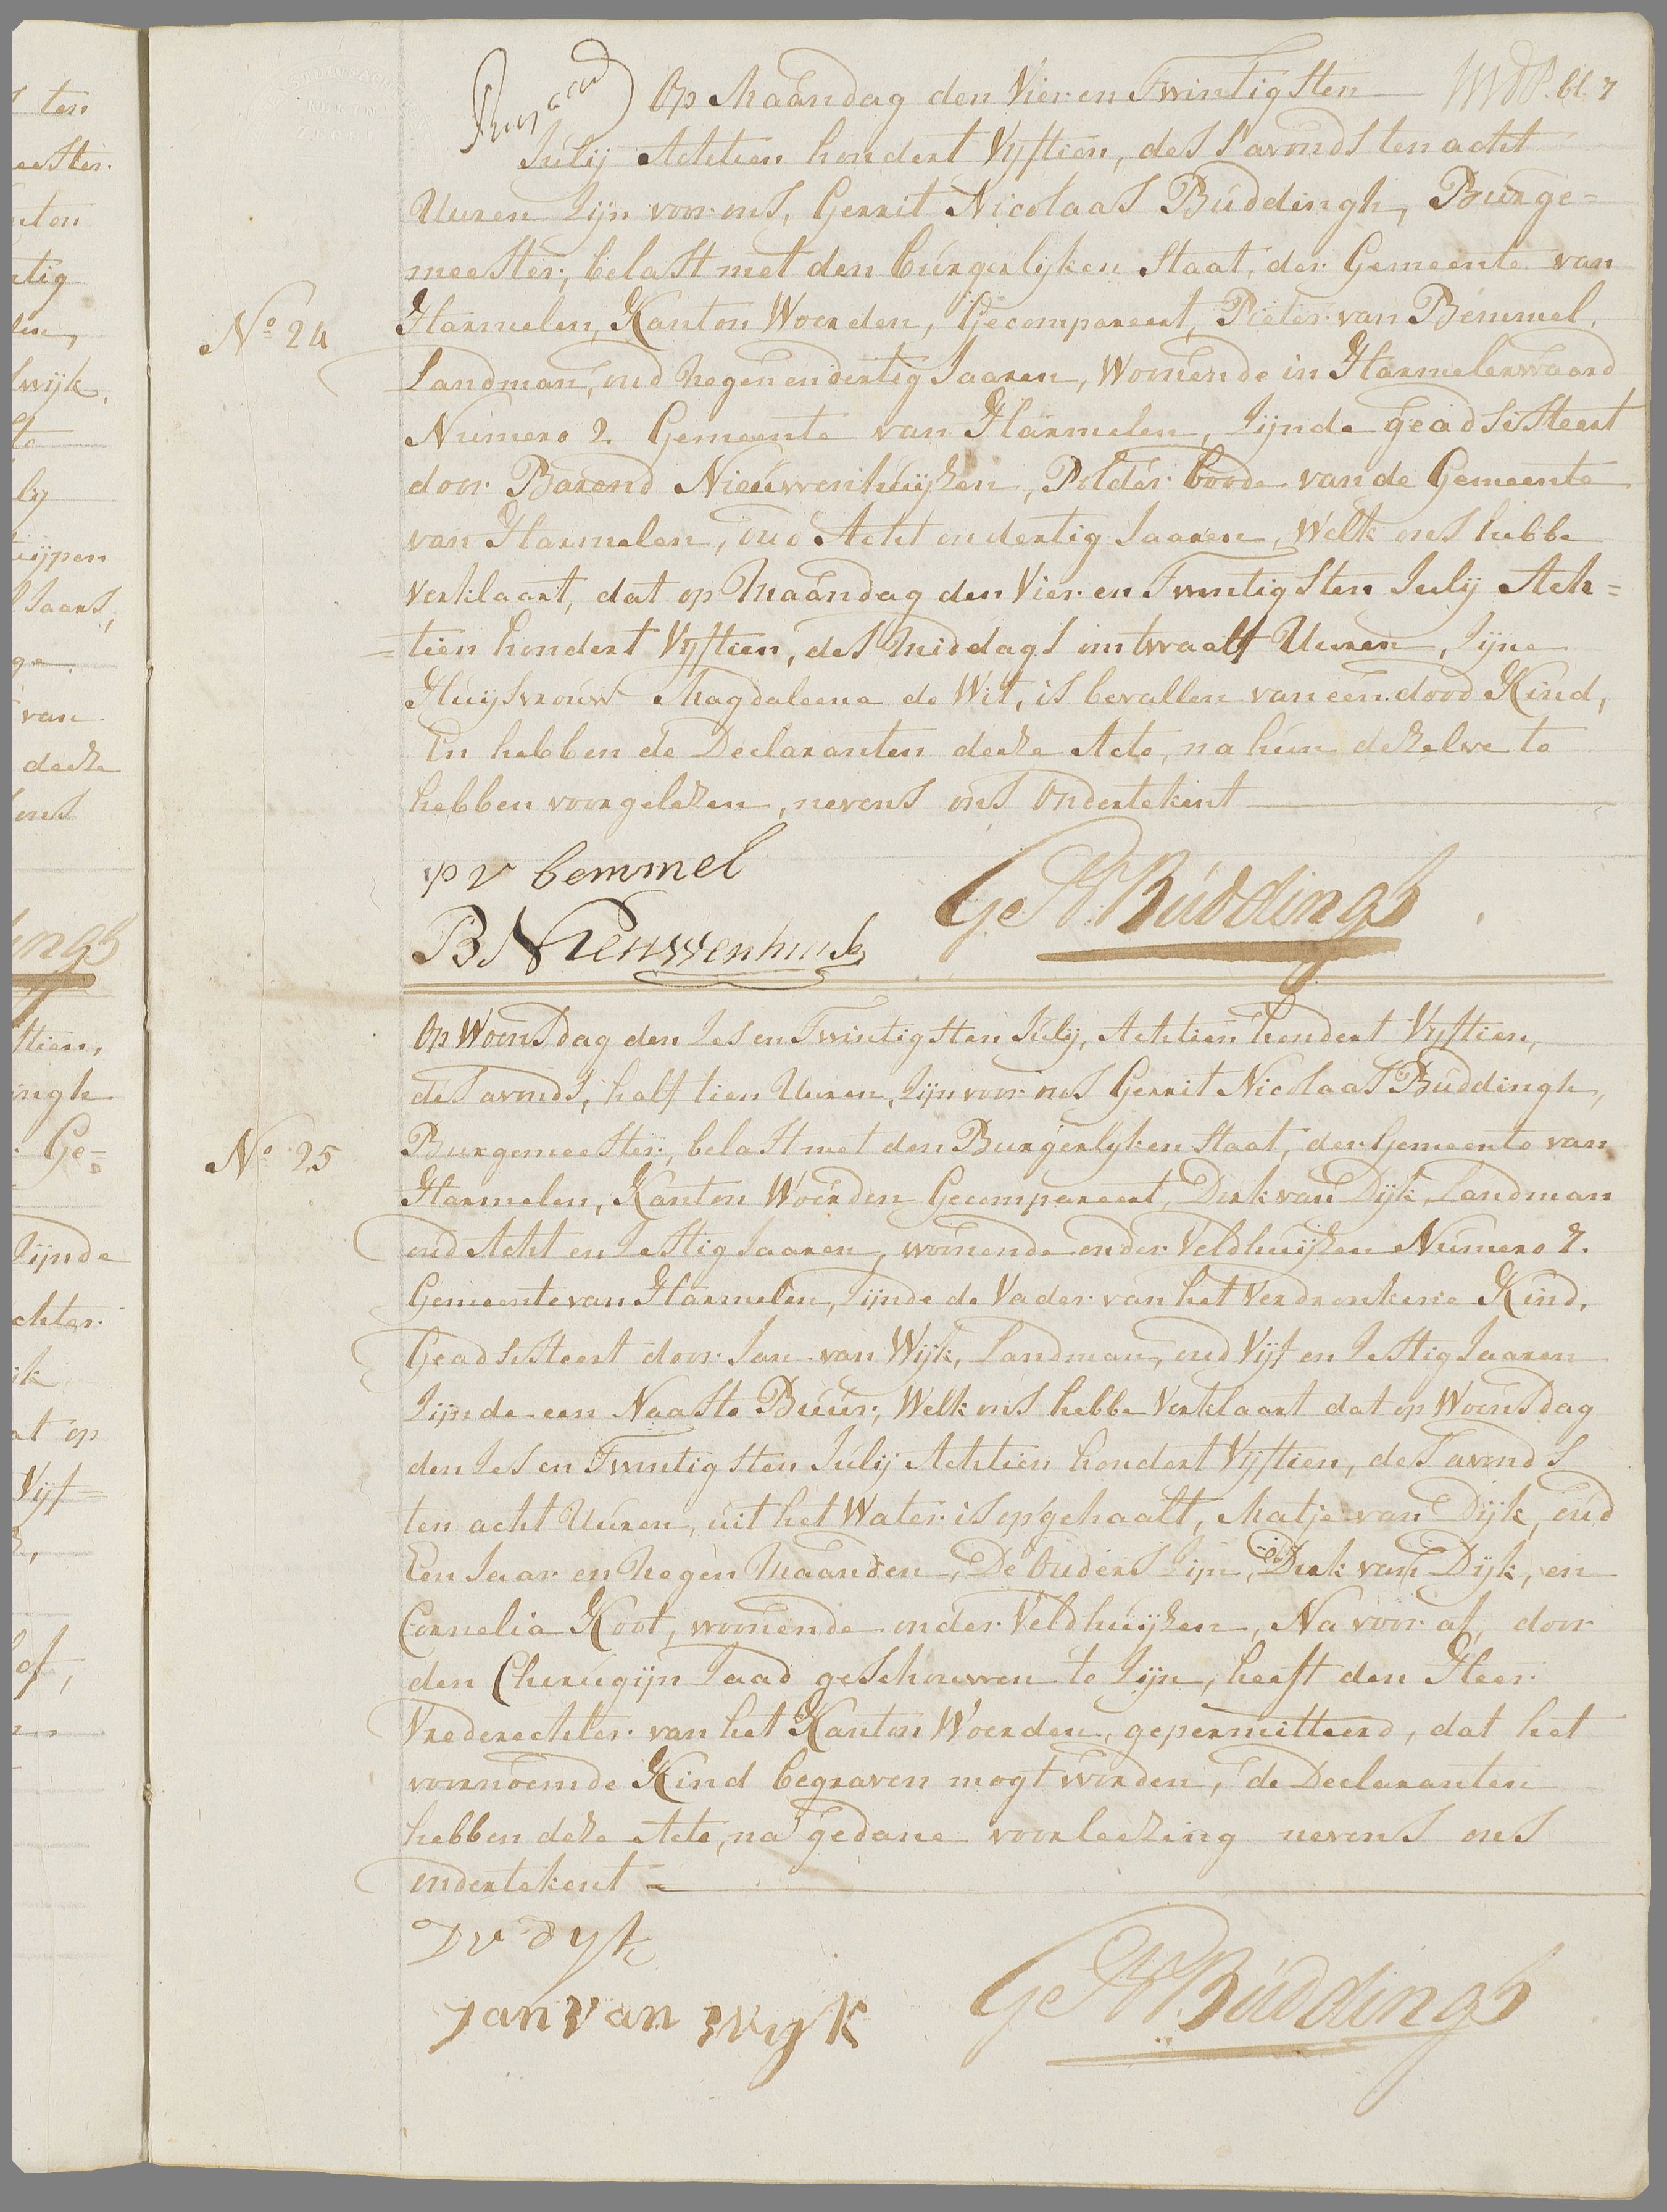 Op Maandag den Vier en Twintigsten bl. 7
Julij Achtien hondert Vijftien, des s'avonds ten acht
Uuren Zijn voor ons, Gerrit Nicolaas Buddingh, Burge=
meester, belast met den burgerlijken Staat, der Gemeente van
No 24
Harmelen, Kanton Woerden, Gecompareert, Pieter van Bemmel,
Landman, oud Negen en dertig Jaaren, Woonende in Harmelerwaard
Numero 2 Gemeente van Harmelen, Zijnde geadsisteert
door Barend Nieuwenhuijzen, Polder boode van de Gemeente
van Harmelen, oud Acht en dertig Jaaren, Welk ons hebbe
Verklaart, dat op Maandag den Vier en Twintigsten Julij Ach=
=tien hondert Vijftien, des Middags om twaalf Uuren, Zijne
Huijsvrouw Magdaleena de Wit, is bevallen van een dood Kind,
En hebben de Declaranten deeze Acte, na hun dezelve te
hebben voorgelezen, nevens ons Ondertekent
p v bemmel
GeN Buddingh
B Nieuwenhuize
Op Woensdag den Zes en Twintigsten Julij, Achtien hondert Vijftien,
des avonds, half tien Uuren, Zijn voor ons Gerrit Nicolaas Buddingh,
No 25
Burgemeester, belast met den Burgerlijken Staat, der Gemeente van
Harmelen, Kanton Woerden Gecompareert, Dirk van Dijk, Landman
oud Acht en Zestig Jaaren, woonende onder Veldhuijzen Numero 7.
Gemeente van Harmelen, Zijnde de Vader van het Verdronkene Kind,
Geadsisteert door Jan van Wijk, Landman, oud Vijf en Zestig Jaaren
Zijnde een Naaste Buur, Welk ons hebbe Verklaart dat op Woensdag
den Zes en Twintigsten Julij Achtien hondert Vijftien, des avonds
ten acht Uuren, uit het Water is opgehaalt, Matje van Dijk, oud
Een Jaar en Negen Maanden, De Ouders Zijn, Dirk van Dijk, en
Cornelia Koot, woonende onder Veldhuijzen, Na voor af, door
den Cherugijn Taad geschouwen te Zijn, heeft den Heer
Vrederechter van het Kanton Woerden, gepermitteerd, dat het
voornoemde Kind begraven mogt worden, de Declaranten
hebben deze Acte, na gedane voorleezing nevens ons
ondertekent =
D v dyk
GeN Buddingh
Jan van wyk
ten
eester.
nton
ntig
wijk,
Jaars,
van
deeze
ons
tien,
ingh
Ge=
Zijnde
chter
at op
Vijf=